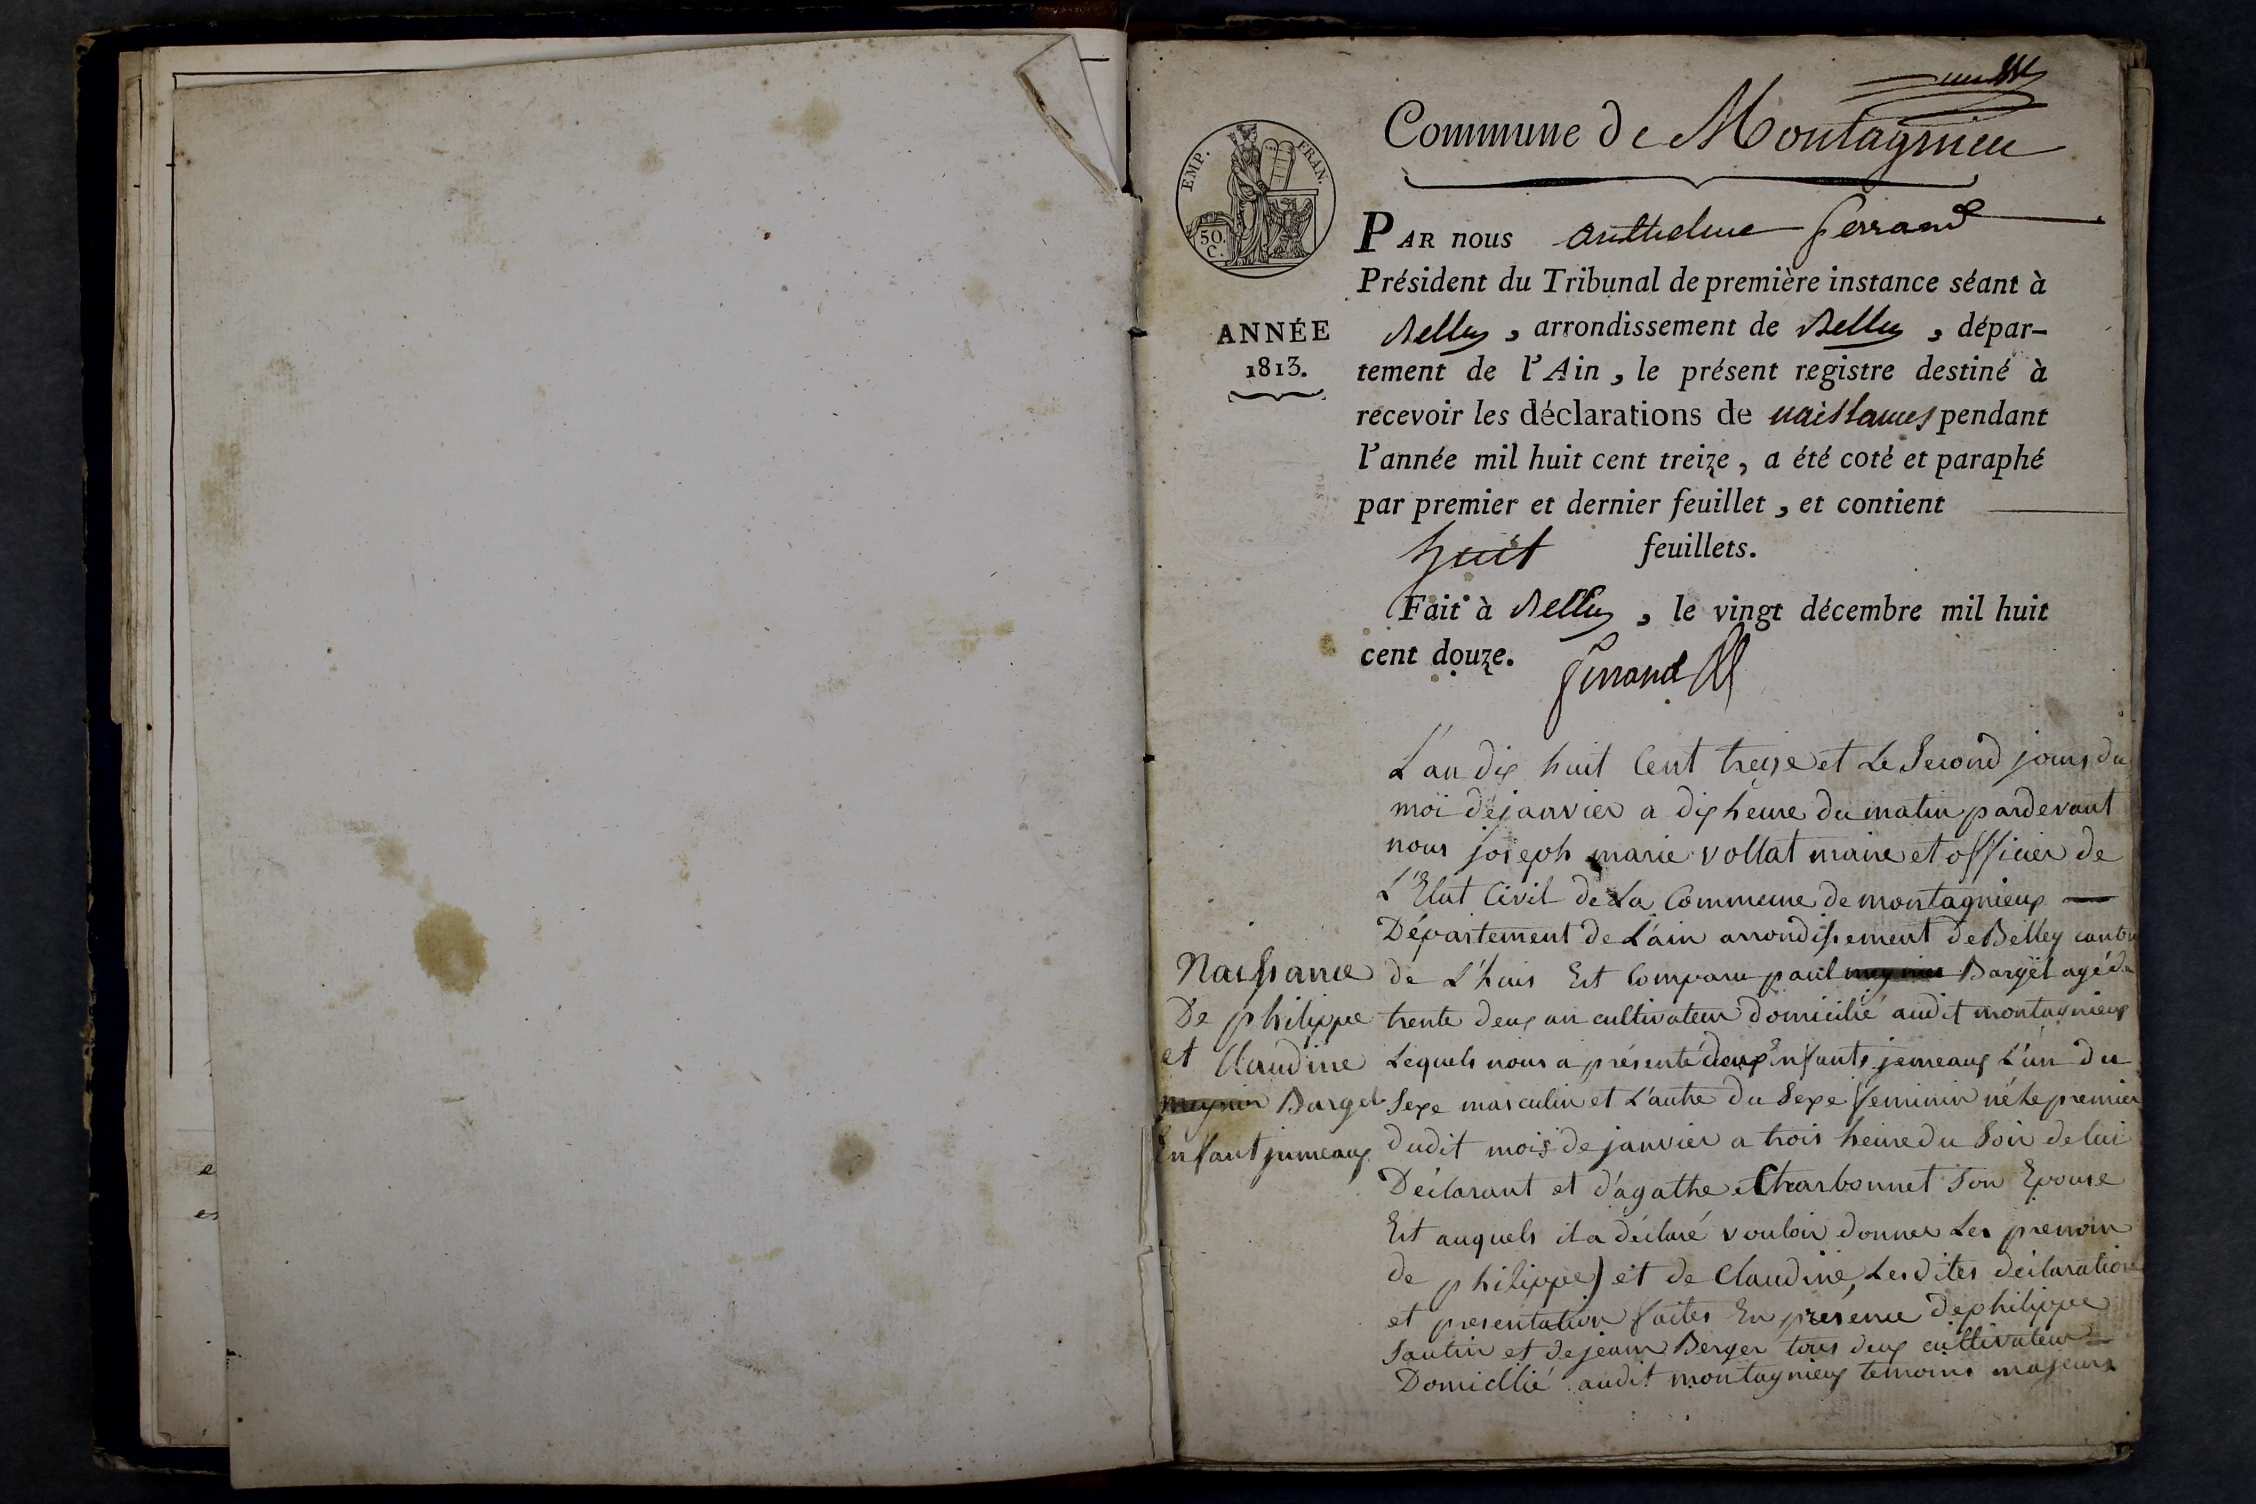 Commune de Montagnieu
EMP. FRAN.
50.
C.
PAR nous anthelme ferrand
Président du Tribunal de première instance séant à
ANNÉE
1813.
Belley, arrondissement de Belley, dépar-
tement de l'Ain, le présent registre destiné à
recevoir les déclarations de naissances pendant
l'année mil huit cent treize, a été coté et paraphé
par premier et dernier feuillet, et contient
huit feuillets.
Fait à Belley, le vingt décembre mil huit
cent douze.
ferrand
L'an dix huit Cent treize et Le Second jours du
moi de janvier a dix heure du matin pardevant
nous joseph marie vollat maire et officier de
L'Etat Civil de La Commune de montagnieux
Département de L'ain arrondissement de Belley canton
de L'huis Est Comparu paul Bargel agé de
trente deux an cultivateur domicilié audit montagnieux
Lequels nous a présenté deux Enfants jemeaux L'un du
Sexe masculin et L'autre du Sexe feminin né Le premier
dudit mois de janvier a trois heure du Soir de lui
Déclarant et d'agathe Charbonnet Son Epouse
Est auquels il a déclaré vouloir donner Les prenom
de philippe et de Claudine, Les dites déclaration
et presentation faites En présence de philippe
Sautin et de jean Berger tous deux cultivateur
Domicillié audit montagnieux temoins majeurs
Naissance
De philippe
et Claudine
meynier Bargel
Enfant jumeaux